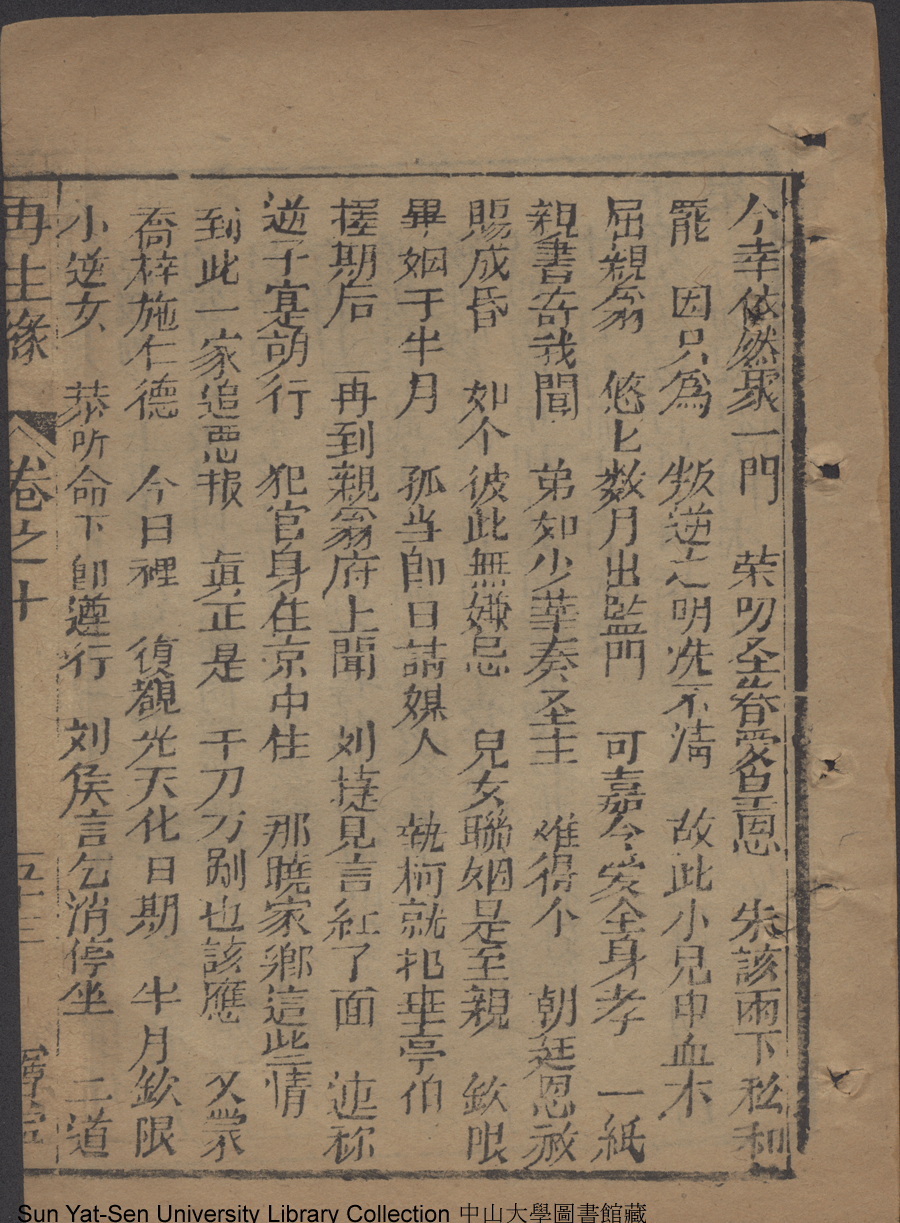 今幸依然聚一門　荣叨圣眷愛皇恩　朱該兩下私和
罷　因只爲　叛逆之明洗不清　故此小兒申血本
屈親翁　悠匕数月出監門　可嘉令爱全身孝　一紙
親書寄我聞　弟如少華奏圣主　难得个　朝廷恩赦
賜成昏　如个彼此無嫌忌　兒女聯姻是至親　欽限
畢姻于半月　孤当即日請媒人　執柯就扎華亭伯
擇期后　再到親翁府上聞　刘捷見言紅了面　連称
逆子寔胡行　犯官身在京中住　那曉家鄉這些情
到此一家追悪报　眞正是　千刀万剮也該應　又蒙
喬梓施仁德　今日裡　復覩光天化日期　半月欽限
小逆女　恭听命下即遵行　刘侯言乞消停坐　二道
再生緣　卷之十　五十三
Sun Yat-Sen University Library Collection 中山大學圖書館藏